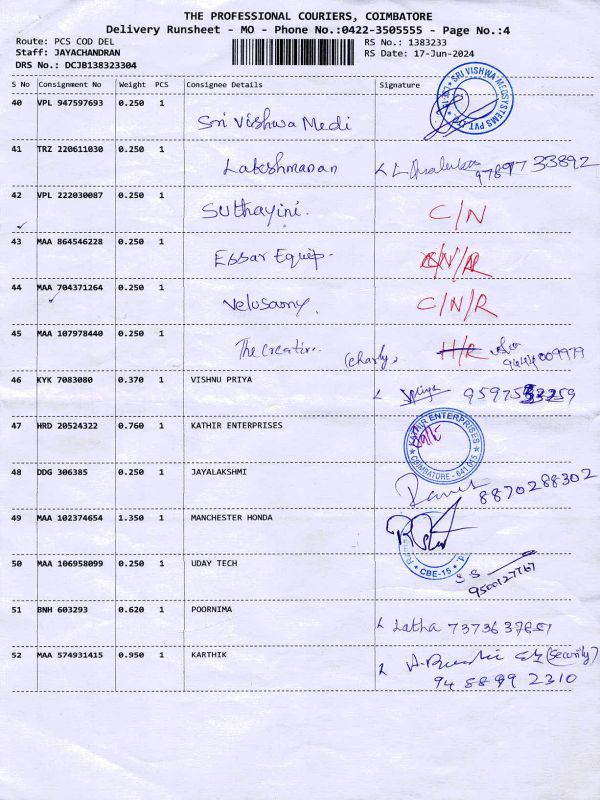 THE PROFESSIONAL COURIERS, COIMBATORE
Delivery Runsheet - MO - Phone No.:0422-3505555 - Page No.:4
Route: PCS COD DEL
RS No.: 1383233
Staff: JAYACHANDRAN
RS Date: 17-Jun-2024
DRS No.: DCJB138323304
S No Consignment No Weight PCS Consignee Details Signature
40 VPL 947597693 0.250 1 Sri Vishwa Medi
SRI VISHWA MEDSYSTEMS PVT
41 TRZ 220611030 0.250 1 Lakshmanan 97897 33892
42 VPL 222030087 0.250 1 Suthayini. C/N
43 MAA 864546228 0.250 1 Essar Equip. N/R
44 MAA 704371264 0.250 1 Velusamy C/N/R
45 MAA 107978440 0.250 1 The creative.. H/R 9444009979
46 KYK 7083080 0.370 1 VISHNU PRIYA Priya
47 HRD 20524322 0.760 1 KATHIR ENTERPRISES
KATHIR ENTERPRISES COIMBATORE - 641 015
48 DDG 306385 0.250 1 JAYALAKSHMI 8870288302
49 MAA 102374654 1.350 1 MANCHESTER HONDA
CBE-15
50 MAA 106958099 0.250 1 UDAY TECH 9500127767
51 BNH 603293 0.620 1 POORNIMA Latha
52 MAA 574931415 0.950 1 KARTHIK (Security)
94 8899 2310